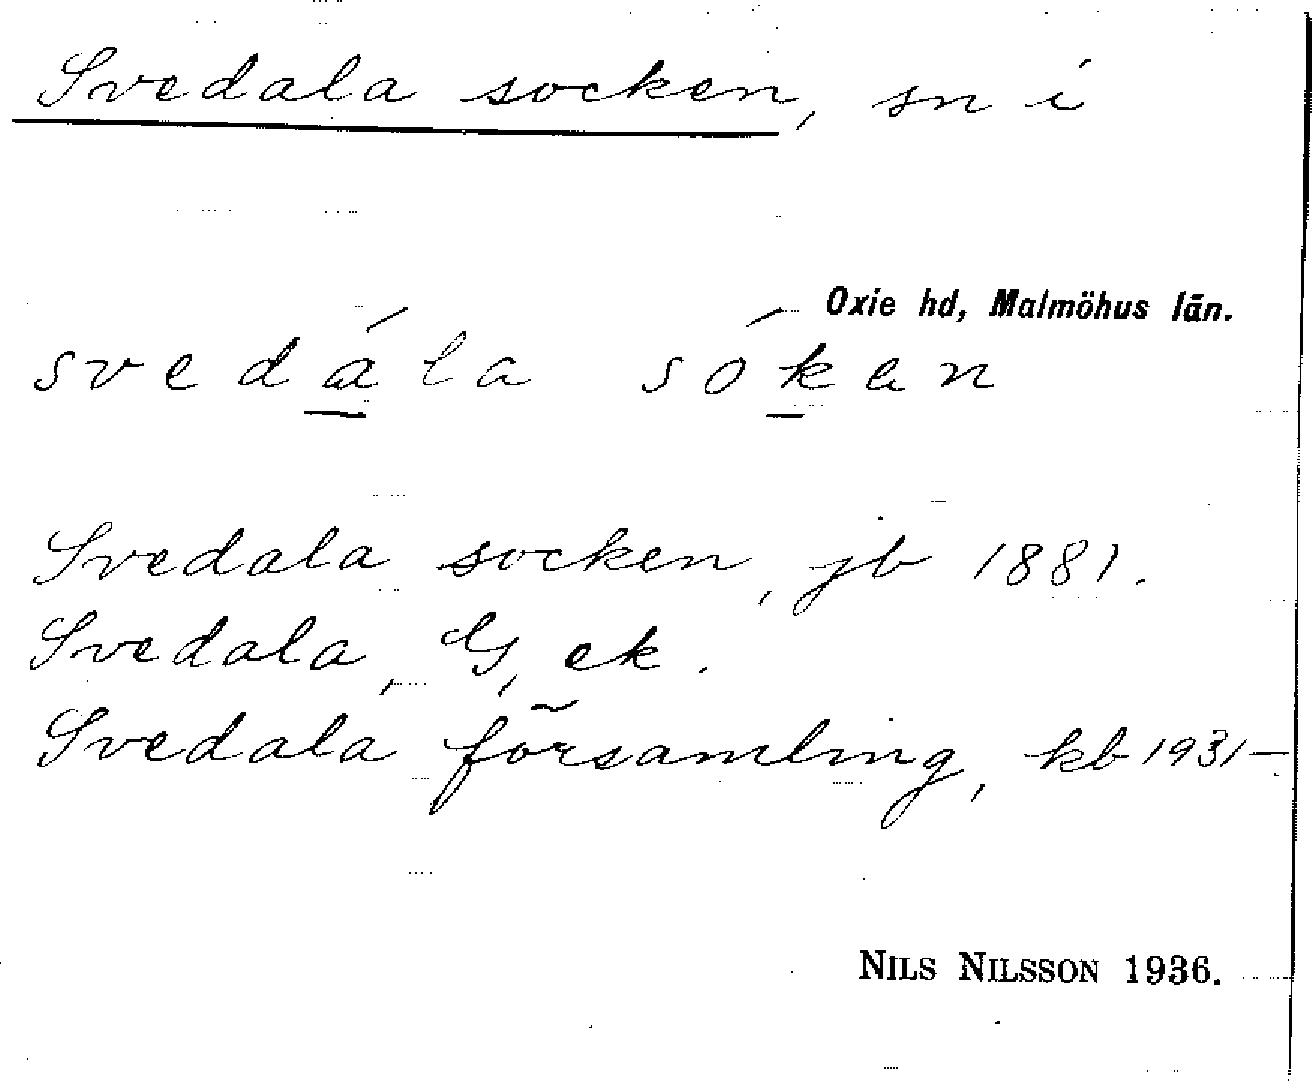 Svedala socken, sn i
Oxie hd, Malmöhus län.
svedála sókan
Svedala socken, jb 1881.
Svedala, G, ek.
Svedala församling, kb 1931–
NILS NILSSON 1936.